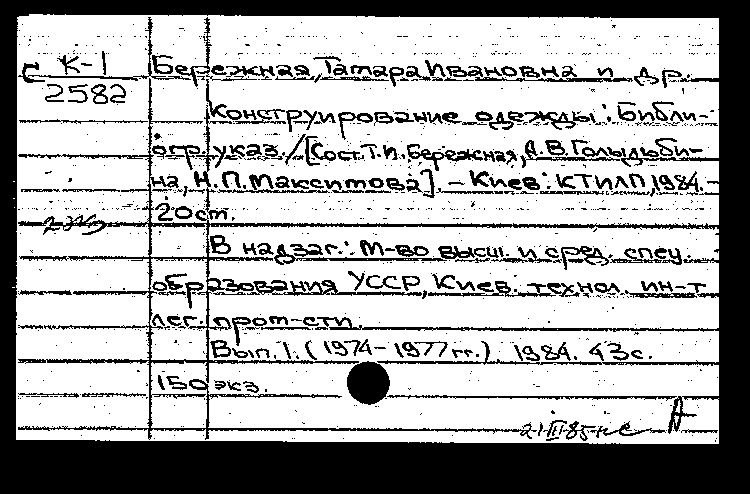 К-1
2582
Бережная, Тамара Ивановна и др.
Конструирование одежды: Библи-
огр. указ./[Сост. Т.И. Бережная, А.В. Голыдьби-
на, Н.П. Макситова]. - Киев: КТИЛП, 1984. -
20 ст.
В надзаг.: М-во высш. и сред. спец.
образования УССР, Киев. технол. ин-т
лег. пром-сти.
Вып. 1. (1974-1977 гг.). 1984. 43 с.
150 экз.
21.III.85
А